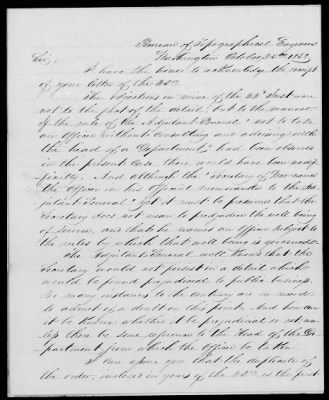 Bureau of Topographical Engineers
Washington October 24th
Sir,
I have the honor to acknowledge the receipt
of your letter of the 23rd.
The objection in mine of the 22d Inst was
not to the fact of the detail, but to the manner.
of the rule of the "Adjutant General" not to take
an Officer without consulting and advising with
the head of a Department, had been observed
in the present case there would have been no dif-
ficulty. And although the "Secretary of War names
the Officer in his Official memorandum to the Ad-
jutant General" yet it must be presumed that the
Secretary does not mean to prejudice the well being
of Service, and that he names an Officer subject to
the rules by which that well being is governed.
The Adjutant General well knows that the
Secretary would not persist in a detail which
would be found prejudicial to public business.
Too many instances to the contrary are on record
to admit of a doubt on this point. And how can
it be known whether it be prejudicial or not un-
less there be some reference to the Head of the De-
partment from which the Officer is taken
I can assure you that the duplicate of
the order, inclosed in yours of the 23rd is the first